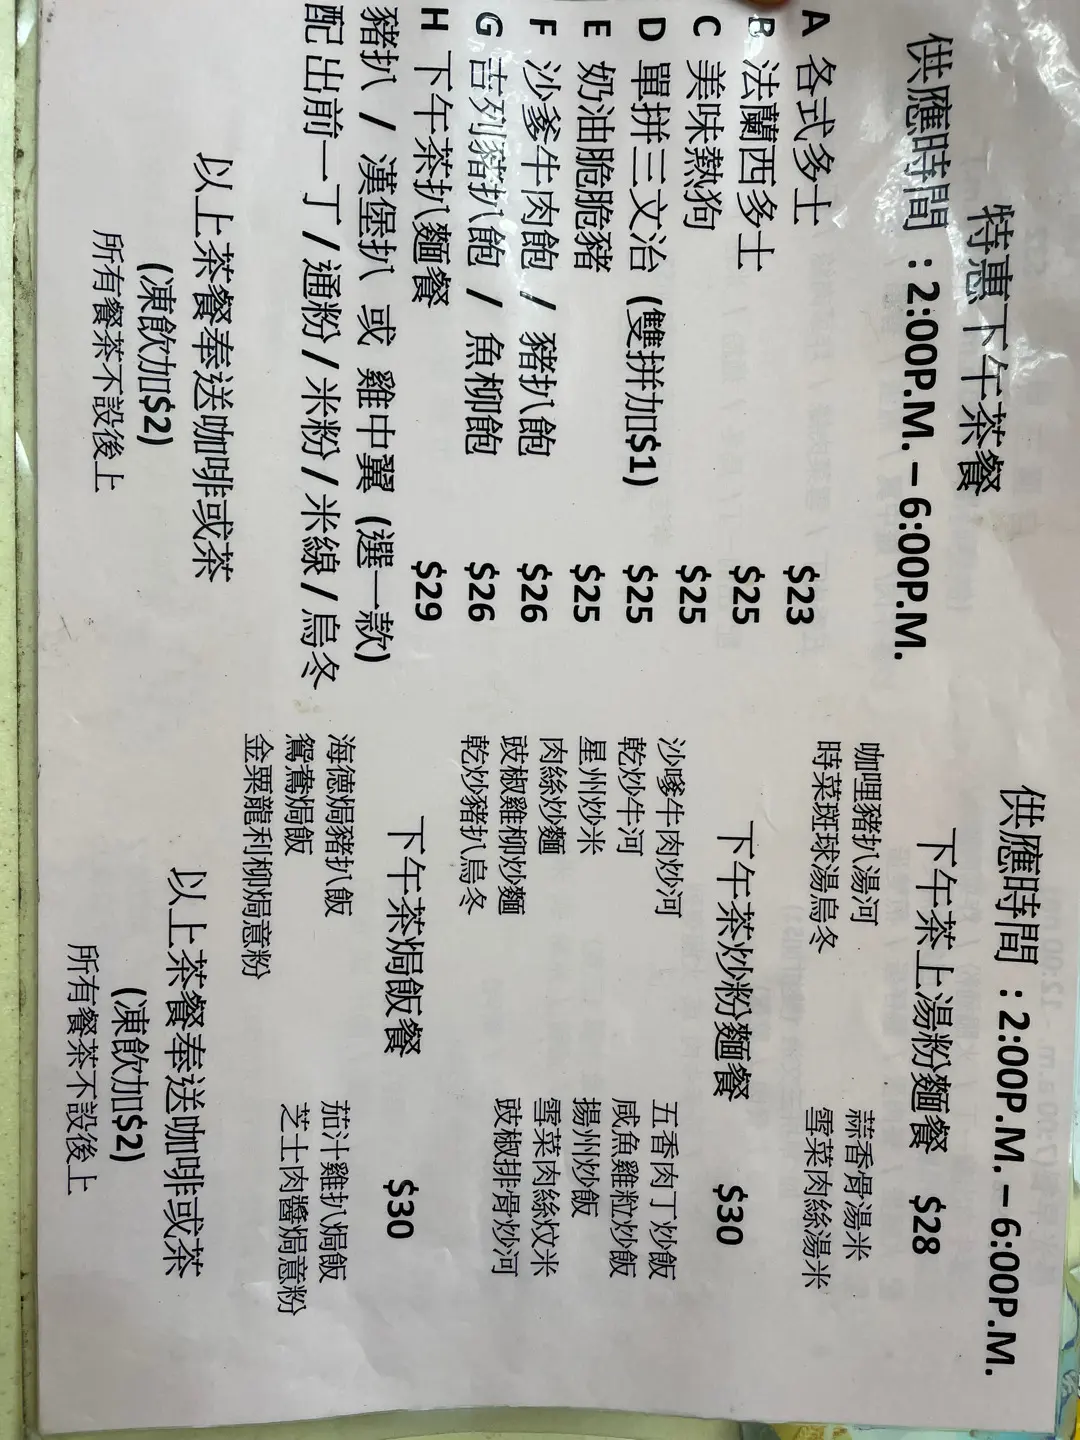 特惠下午茶餐
供應時間：2:00P.M. – 6:00P.M.
A 各式多士 $23
B 法蘭西多士 $25
C 美味熱狗 $25
D 單拼三文治 (雙拼加$1) $25
E 奶油脆脆豬 $25
F 沙爹牛肉飽 / 豬扒飽 $26
G 吉列豬扒飽 / 魚柳飽 $26
H 下午茶扒麵餐 $29
豬扒 / 漢堡扒 或 雞中翼 (選一款)
配 出前一丁 / 通粉 / 米粉 / 米線 / 烏冬
以上茶餐奉送咖啡或茶
(凍飲加$2)
所有餐茶不設後上
供應時間：2:00P.M. – 6:00P.M.
下午茶上湯粉麵餐 $28
咖哩豬扒湯河 蒜香骨湯米
時菜斑球湯烏冬 雪菜肉絲湯米
下午茶炒粉麵餐 $30
沙嗲牛肉炒河 五香肉丁炒飯
乾炒牛河 咸魚雞粒炒飯
星州炒米 揚州炒飯
肉絲炒麵 雪菜肉絲炆米
豉椒雞柳炒麵 豉椒排骨炒河
乾炒豬扒烏冬
下午茶焗飯餐 $30
海德焗豬扒飯 茄汁雞扒焗飯
鴛鴦焗飯 芝士肉醬焗意粉
金粟龍利柳焗意粉
以上茶餐奉送咖啡或茶
(凍飲加$2)
所有餐茶不設後上